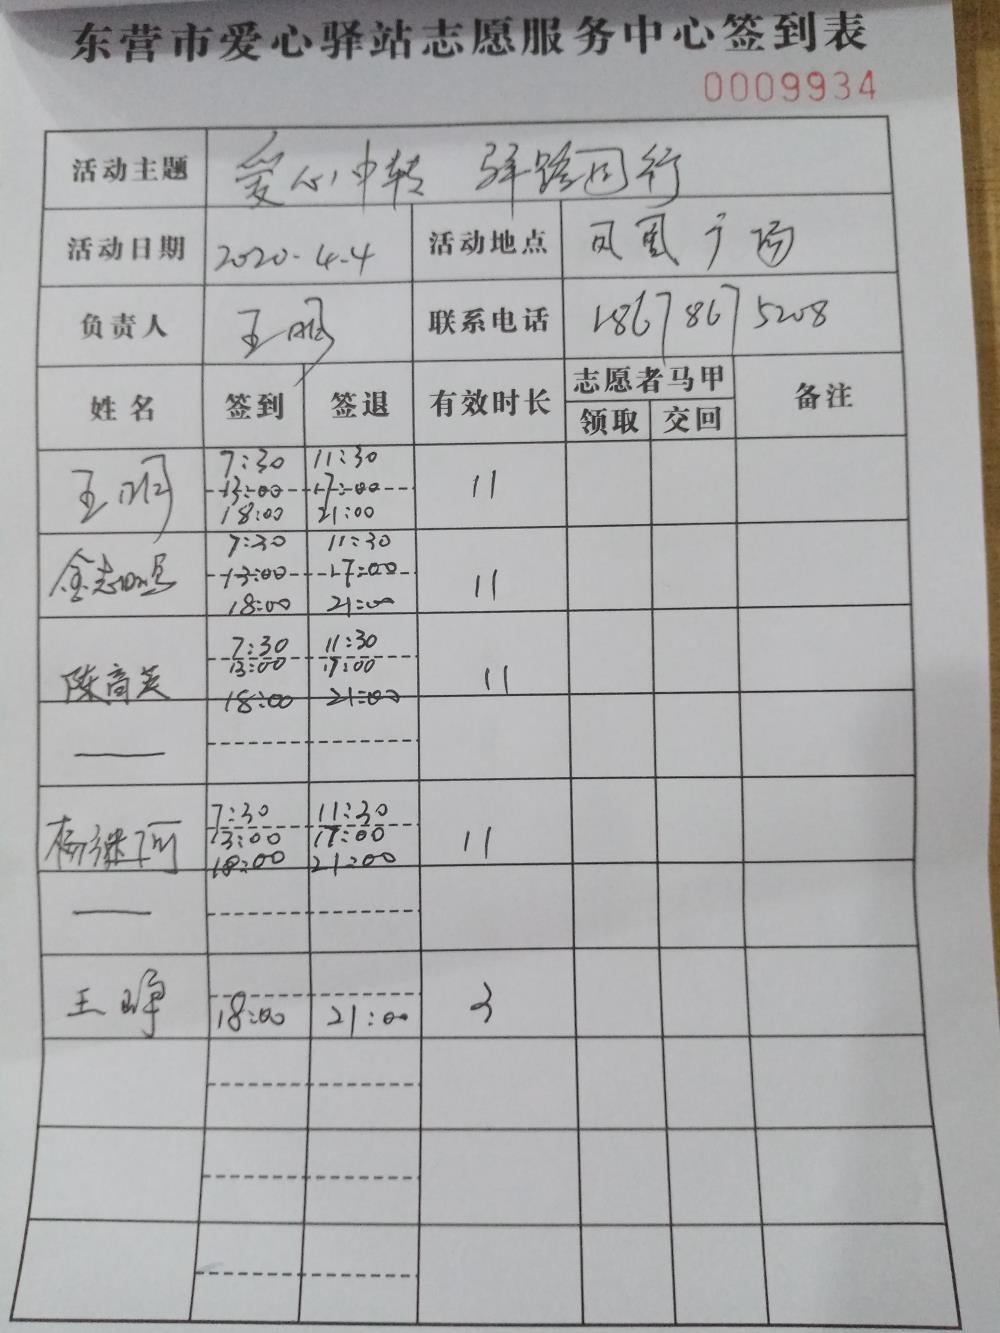 东营市爱心驿站志愿服务中心签到表
0009934
活动主题 爱心中转 驿路同行
活动日期 2020.4.4 活动地点 凤凰广场
负责人 王明 联系电话 18678675208
姓名 签到 签退 有效时长 志愿者马甲 备注
领取 交回
王明 7:30 11:30 11
13:00 17:00
18:00 21:00
金志 7:30 11:30 11
13:00 17:00
18:00 21:00
陈高英 7:30 11:30 11
13:00 17:00
18:00 21:00
杨继河 7:30 11:30 11
13:00 17:00
18:00 21:00
王峥 18:00 21:00 3